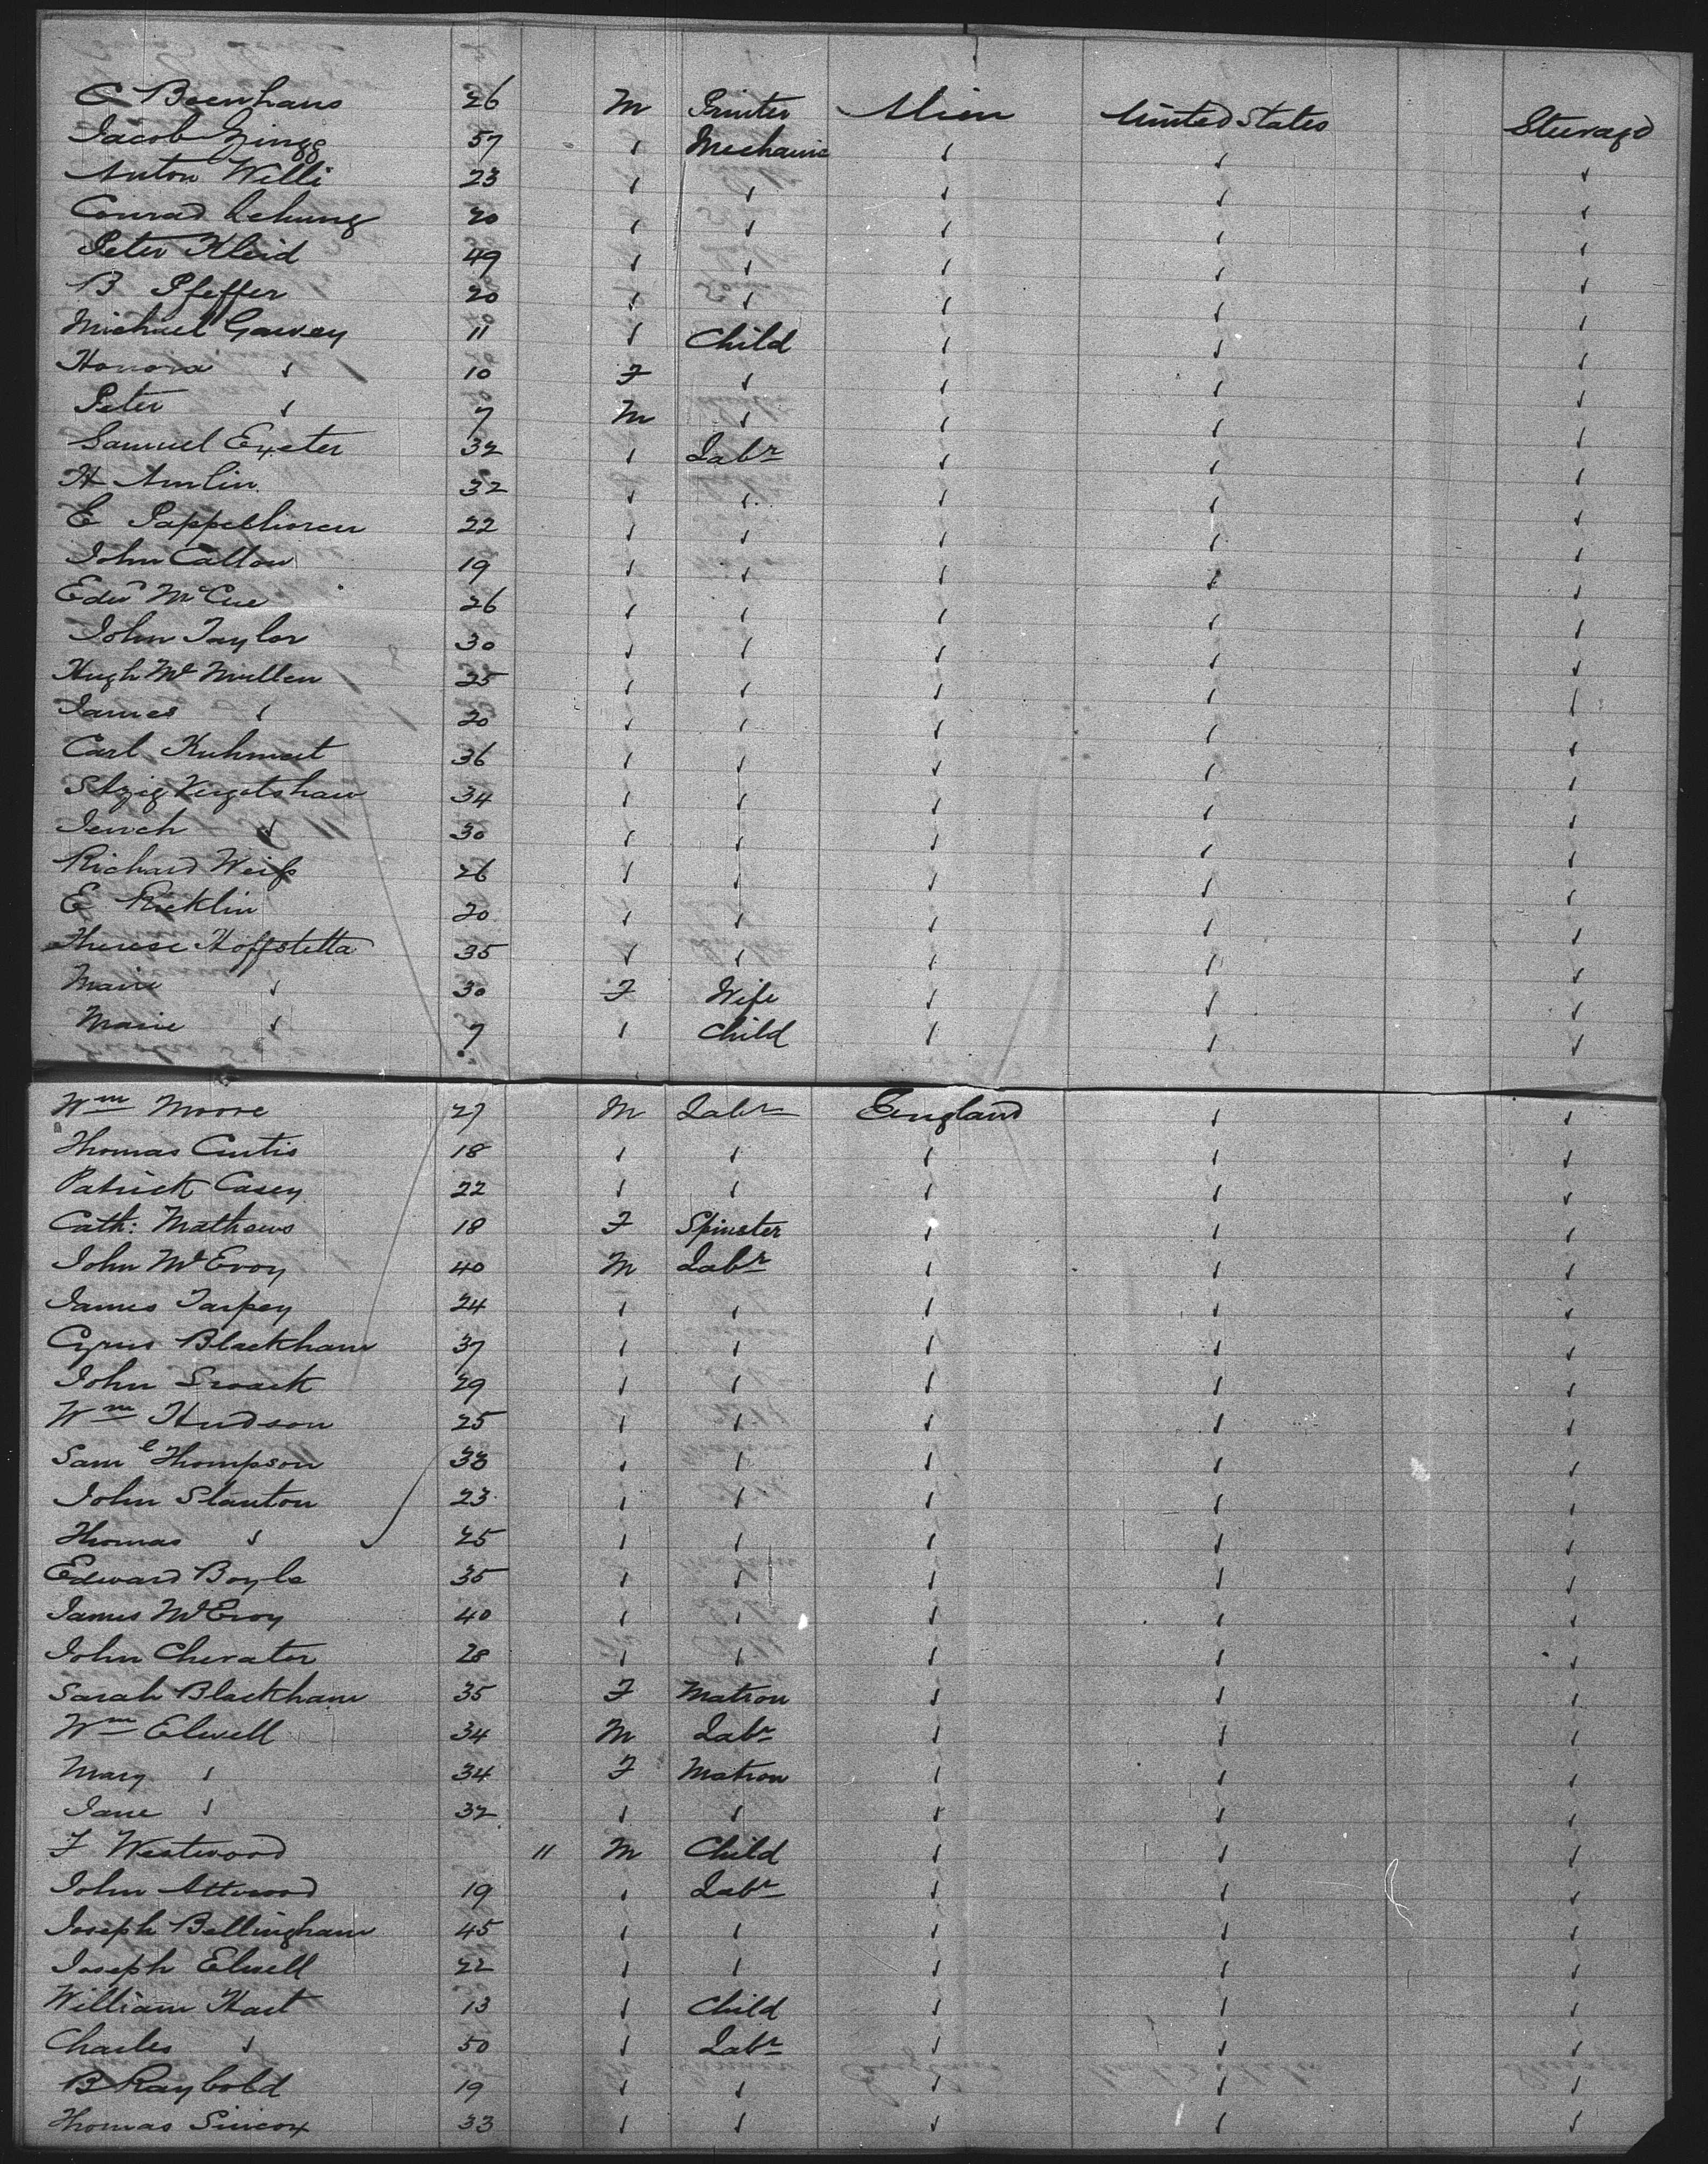 C Beenhaus 26 M Printer Alien United States Steerage
Jacob Zingg 57 ✓ Mechanic ✓ ✓ ✓
Anton Willi 23 ✓ ✓ ✓ ✓ ✓
Conrad 20 ✓ ✓ ✓ ✓ ✓
Peter Kleid 49 ✓ ✓ ✓ ✓ ✓
B Pfeffer 20 ✓ ✓ ✓ ✓ ✓
Michael Garvey 11 ✓ Child ✓ ✓ ✓
Honora ✓ 10 F ✓ ✓ ✓ ✓
Peter ✓ 7 M ✓ ✓ ✓ ✓
Samuel Exeter 32 ✓ Labr ✓ ✓ ✓
H Amlin 32 ✓ ✓ ✓ ✓ ✓
E 22 ✓ ✓ ✓ ✓ ✓
John Catton 19 ✓ ✓ ✓ ✓ ✓
Edwd McCue 26 ✓ ✓ ✓ ✓ ✓
John Taylor 30 ✓ ✓ ✓ ✓ ✓
Hugh McMullen 25 ✓ ✓ ✓ ✓ ✓
James ✓ 20 ✓ ✓ ✓ ✓ ✓
Carl Kuhmert 36 ✓ ✓ ✓ ✓ ✓
34 ✓ ✓ ✓ ✓ ✓
✓ 30 ✓ ✓ ✓ ✓ ✓
Richard Weiss 26 ✓ ✓ ✓ ✓ ✓
E Ricklin 20 ✓ ✓ ✓ ✓ ✓
Therese Hoffstetta 35 ✓ ✓ ✓ ✓ ✓
Marie ✓ 30 F Wife ✓ ✓ ✓
Marie ✓ 7 ✓ Child ✓ ✓ ✓
Wm Moore 27 M Labr England ✓ ✓
Thomas Curtis 18 ✓ ✓ ✓ ✓ ✓
Patrick Casey 22 ✓ ✓ ✓ ✓ ✓
Cath: Mathews 18 F Spinster ✓ ✓ ✓
John McEvoy 40 M Labr ✓ ✓ ✓
James Tarpey 24 ✓ ✓ ✓ ✓ ✓
Cyrus Blackham 37 ✓ ✓ ✓ ✓ ✓
John 29 ✓ ✓ ✓ ✓ ✓
Wm Hudson 25 ✓ ✓ ✓ ✓ ✓
Saml Thompson 33 ✓ ✓ ✓ ✓ ✓
John Stanton 23 ✓ ✓ ✓ ✓ ✓
Thomas ✓ 25 ✓ ✓ ✓ ✓ ✓
Edward Boyle 35 ✓ ✓ ✓ ✓ ✓
James McEvoy 40 ✓ ✓ ✓ ✓ ✓
John Chevater 28 ✓ ✓ ✓ ✓ ✓
Sarah Blackham 35 F Matron ✓ ✓ ✓
Wm Elwell 34 M Labr ✓ ✓ ✓
Mary ✓ 34 F Matron ✓ ✓ ✓
Jane ✓ 32 ✓ ✓ ✓ ✓ ✓
F Westwood 11 M Child ✓ ✓ ✓
John Attwood 19 ✓ Labr ✓ ✓ ✓
Joseph Bellingham 45 ✓ ✓ ✓ ✓ ✓
Joseph Elwell 22 ✓ ✓ ✓ ✓ ✓
William Hart 13 ✓ Child ✓ ✓ ✓
Charles ✓ 50 ✓ Labr ✓ ✓ ✓
B Raybold 19 ✓ ✓ ✓ ✓ ✓
Thomas Simcox 33 ✓ ✓ ✓ ✓ ✓